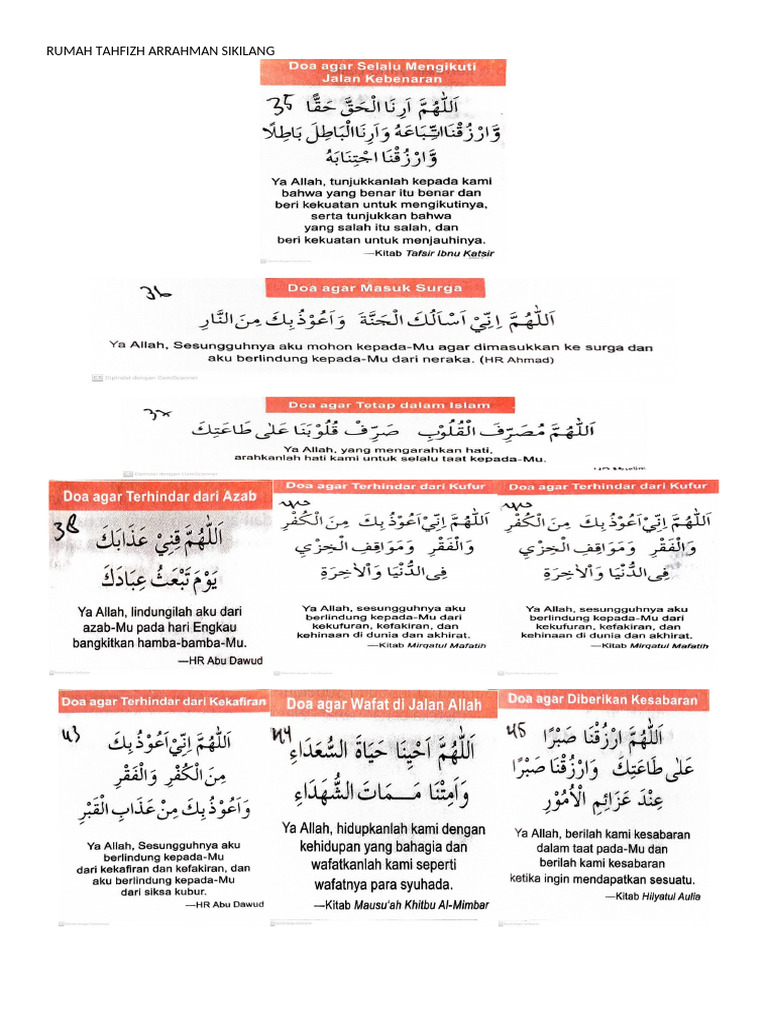 RUMAH TAHFIZH ARRAHMAN SIKILANG
Doa agar Selalu Mengikuti
Jalan Kebenaran
35
اَللّٰهُمَّ اَرِنَا الْحَقَّ حَقًّا
وَّارْزُقْنَا اتِّبَاعَهُ وَاَرِنَا الْبَاطِلَ بَاطِلًا
وَّارْزُقْنَا اجْتِنَابَهُ
Ya Allah, tunjukkanlah kepada kami
bahwa yang benar itu benar dan
beri kekuatan untuk mengikutinya,
serta tunjukkan bahwa
yang salah itu salah, dan
beri kekuatan untuk menjauhinya.
—Kitab Tafsir Ibnu Katsir
Doa agar Masuk Surga
36
اَللّٰهُمَّ اِنِّيْ اَسْاَلُكَ الْجَنَّةَ وَاَعُوْذُ بِكَ مِنَ النَّارِ
Ya Allah, Sesungguhnya aku mohon kepada-Mu agar dimasukkan ke surga dan
aku berlindung kepada-Mu dari neraka. (HR Ahmad)
CS Dipindai dengan CamScanner
Doa agar Tetap dalam Islam
37
اَللّٰهُمَّ مُصَرِّفَ الْقُلُوْبِ صَرِّفْ قُلُوْبَنَا عَلٰى طَاعَتِكَ
Ya Allah, yang mengarahkan hati,
arahkanlah hati kami untuk selalu taat kepada-Mu.
CS Dipindai dengan CamScanner
Doa agar Terhindar dari Azab
38
اَللّٰهُمَّ قِنِيْ عَذَابَكَ
يَوْمَ تَبْعَثُ عِبَادَكَ
Ya Allah, lindungilah aku dari
azab-Mu pada hari Engkau
bangkitkan hamba-bamba-Mu.
—HR Abu Dawud
Doa agar Terhindar dari Kufur
اَللّٰهُمَّ اِنِّيْ اَعُوْذُ بِكَ مِنَ الْكُفْرِ
وَالْفَقْرِ وَمَوَاقِفِ الْخِزْيِ
فِى الدُّنْيَا وَالْاٰخِرَةِ
Ya Allah, sesungguhnya aku
berlindung kepada-Mu dari
kekufuran, kefakiran, dan
kehinaan di dunia dan akhirat.
—Kitab Mirqatul Mafatih
Doa agar Terhindar dari Kufur
اَللّٰهُمَّ اِنِّيْ اَعُوْذُ بِكَ مِنَ الْكُفْرِ
وَالْفَقْرِ وَمَوَاقِفِ الْخِزْيِ
فِى الدُّنْيَا وَالْاٰخِرَةِ
Ya Allah, sesungguhnya aku
berlindung kepada-Mu dari
kekufuran, kefakiran, dan
kehinaan di dunia dan akhirat.
—Kitab Mirqatul Mafatih
Doa agar Terhindar dari Kekafiran
43
اَللّٰهُمَّ اِنِّيْ اَعُوْذُ بِكَ
مِنَ الْكُفْرِ وَالْفَقْرِ
وَاَعُوْذُ بِكَ مِنْ عَذَابِ الْقَبْرِ
Ya Allah, Sesungguhnya aku
berlindung kepada-Mu
dari kekafiran dan kefakiran, dan
aku berlindung kepada-Mu
dari siksa kubur.
—HR Abu Dawud
Doa agar Wafat di Jalan Allah
44
اَللّٰهُمَّ اَحْيِنَا حَيَاةَ السُّعَدَاءِ
وَاَمِتْنَا مَمَاتَ الشُّهَدَاءِ
Ya Allah, hidupkanlah kami dengan
kehidupan yang bahagia dan
wafatkanlah kami seperti
wafatnya para syuhada.
—Kitab Mausu'ah Khitbu Al-Mimbar
Doa agar Diberikan Kesabaran
45
اَللّٰهُمَّ ارْزُقْنَا صَبْرًا
عَلٰى طَاعَتِكَ وَارْزُقْنَا صَبْرًا
عِنْدَ عَزَائِمِ الْاُمُوْرِ
Ya Allah, berilah kami kesabaran
dalam taat pada-Mu dan
berilah kami kesabaran
ketika ingin mendapatkan sesuatu.
—Kitab Hilyatul Aulia